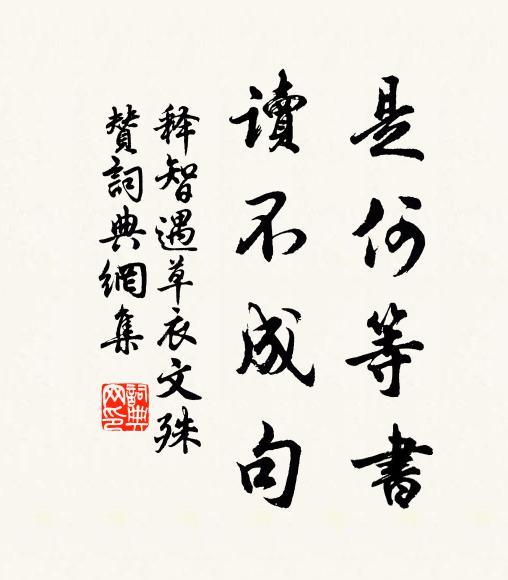 是何等書
讀不成句
释智遇草衣文殊
赞詞典網集
詞典網印